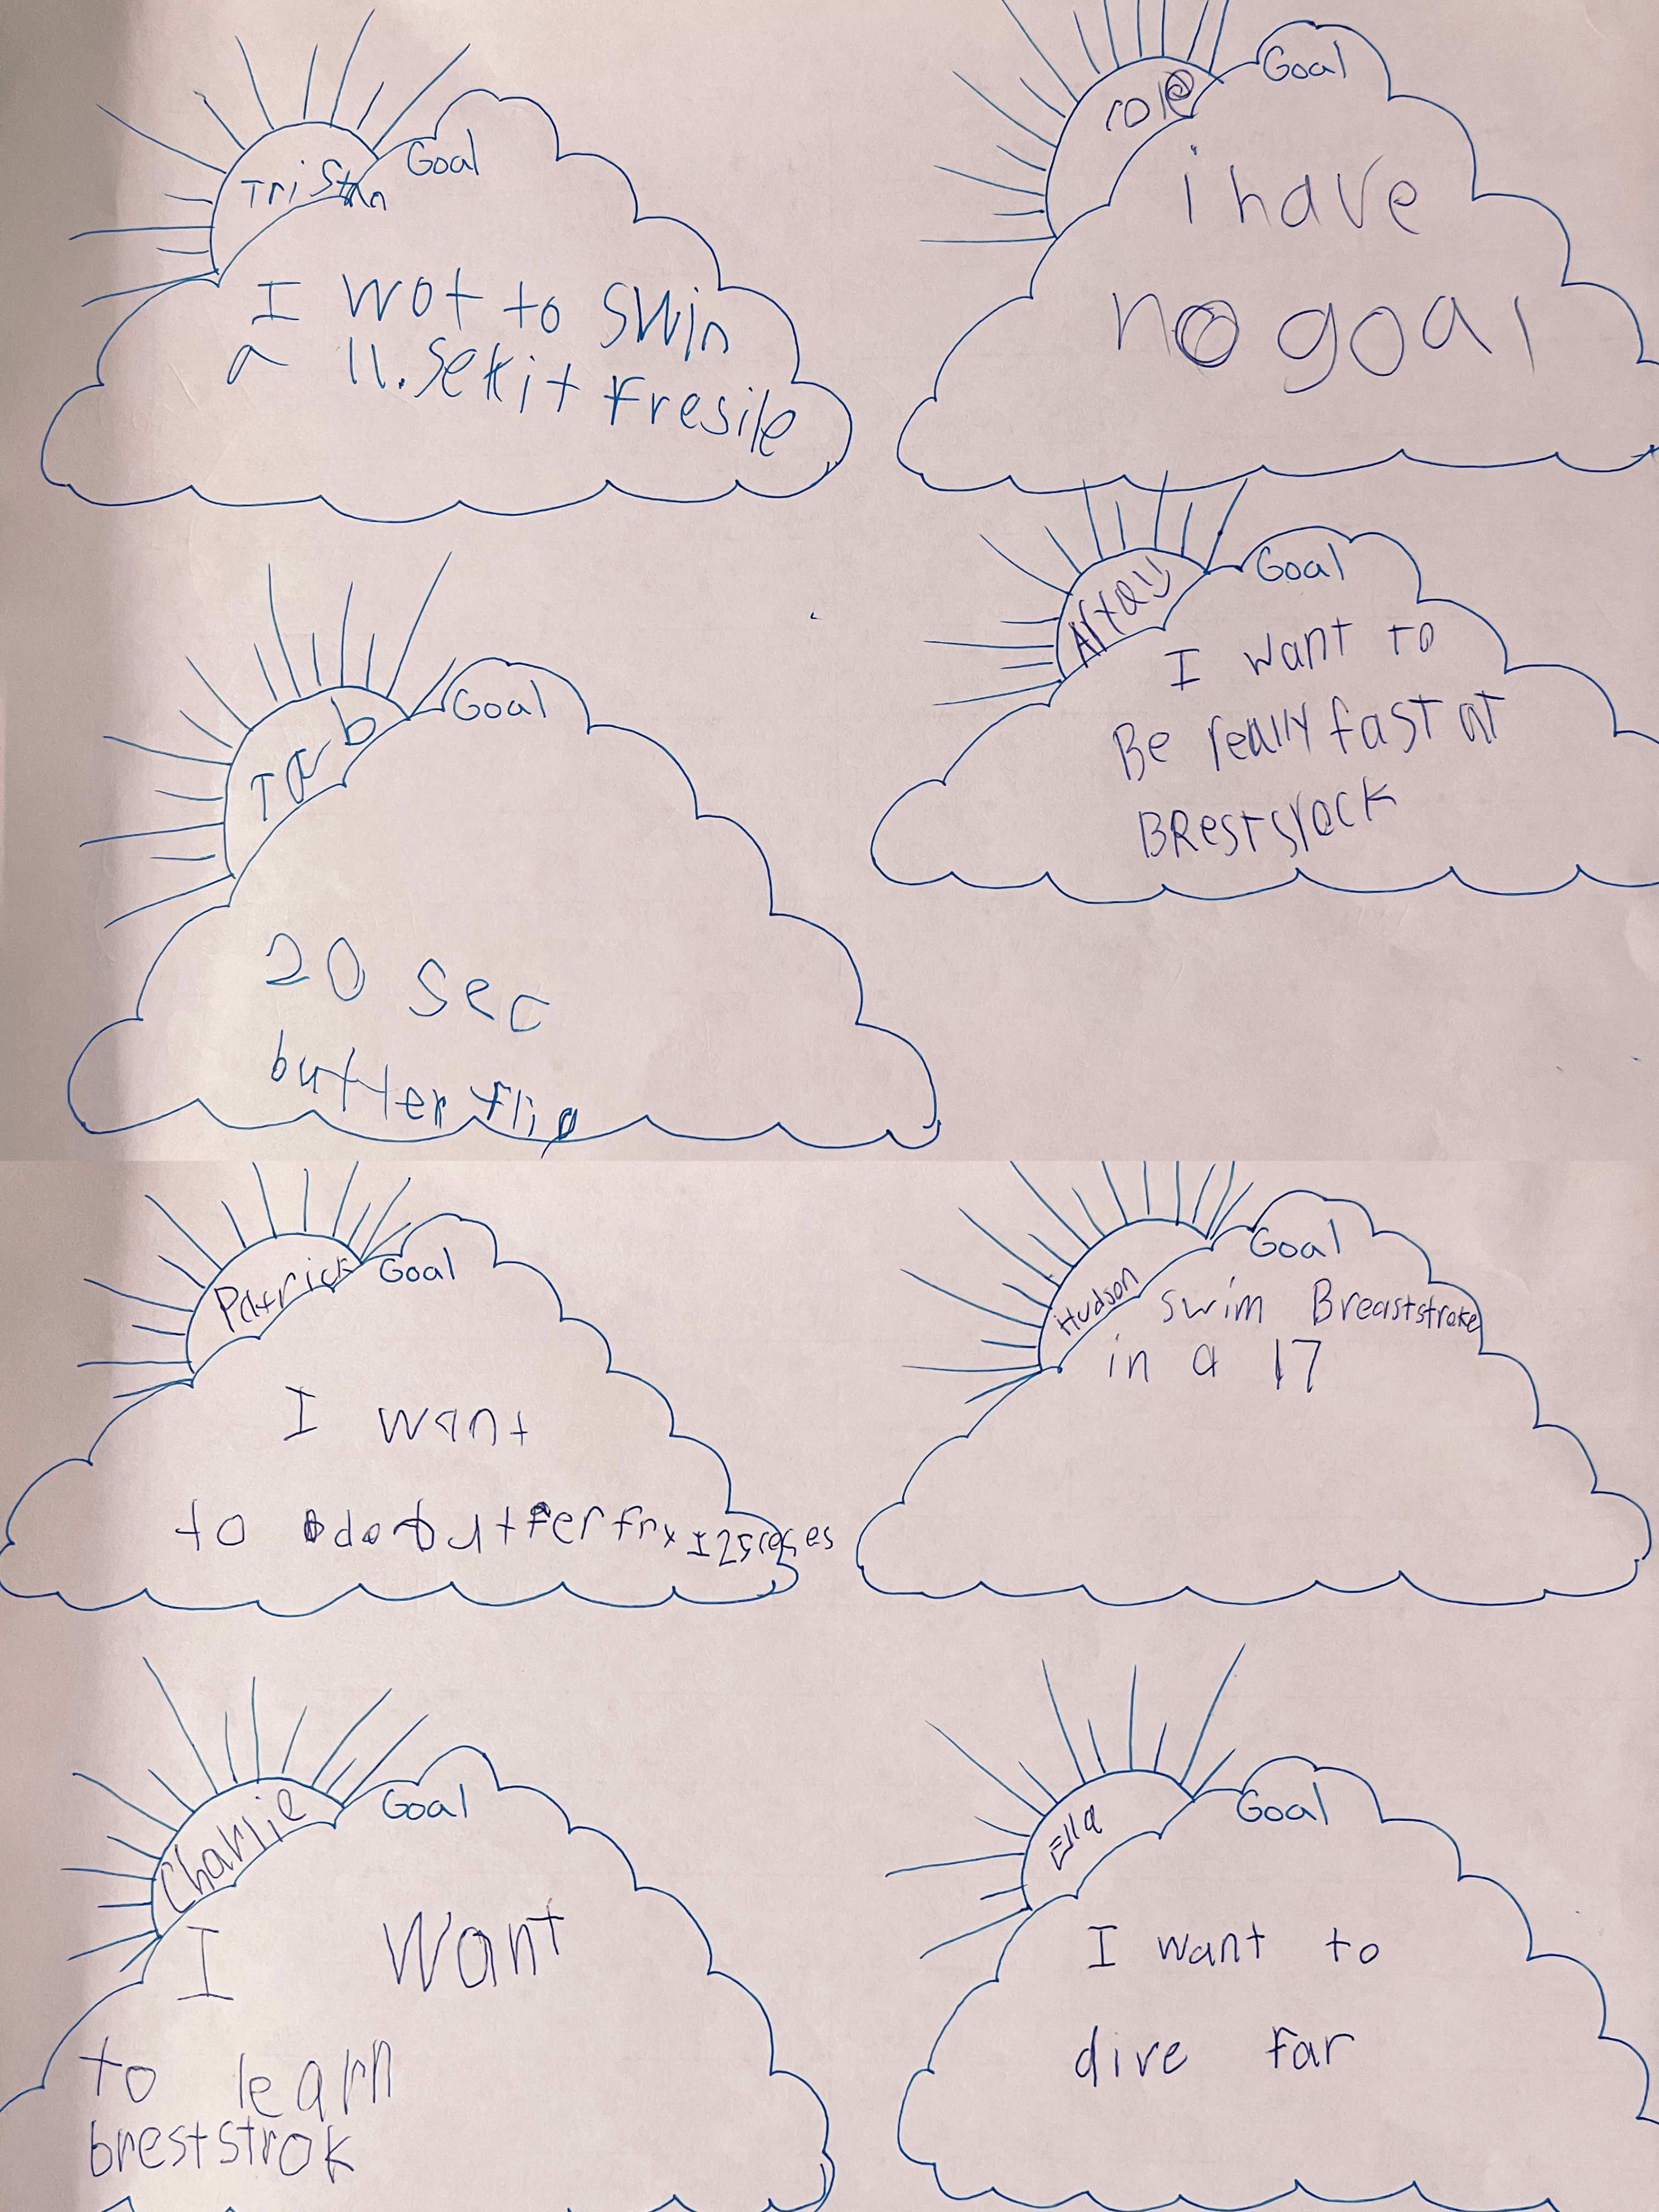 Tristan
Goal
I wot to swin
a 11.sekit fresile
cole
Goal
i have
no goal
Goal
20 sec
butter flip
Goal
I want to
Be really fast at
BRestsrock
Patrick
Goal
I want
to do butterfry
Hudson
Goal
swim Breaststroke
in a 17
Charlie
Goal
I want
to learn
breststrok
Ella
Goal
I want to
dive far